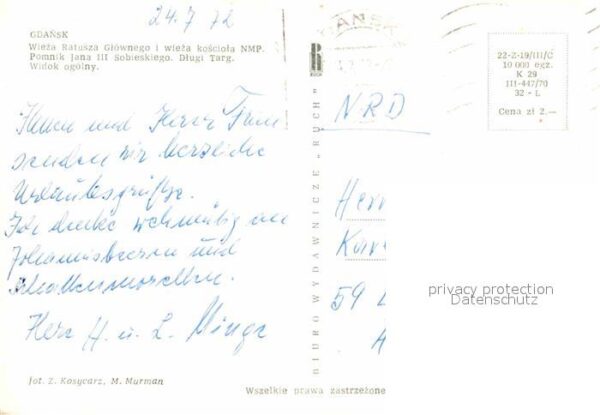 24.7.72
GDAŃSK
Wieża Ratusza Głównego i wieża kościoła NMP.
Pomnik Jana III Sobieskiego. Długi Targ.
Widok ogólny.
Ihnen und Ihrer Frau
senden wir herzliche
Urlaubsgrüße.
Ich denke wehmütig an
Johannisbeeren und
Schattenmorellen.
Herz H. u. L.
fot. Z. Kosycarz, M. Murman
BIURO WYDAWNICZE „RUCH"
Wszelkie prawa zastrzeżone
GDAŃSK
NRD
22-Z-19/III/C
10 000 egz.
K 29
III-447/70
32 - L
Cena zł 2.—
Herrn
59
privacy protection
Datenschutz